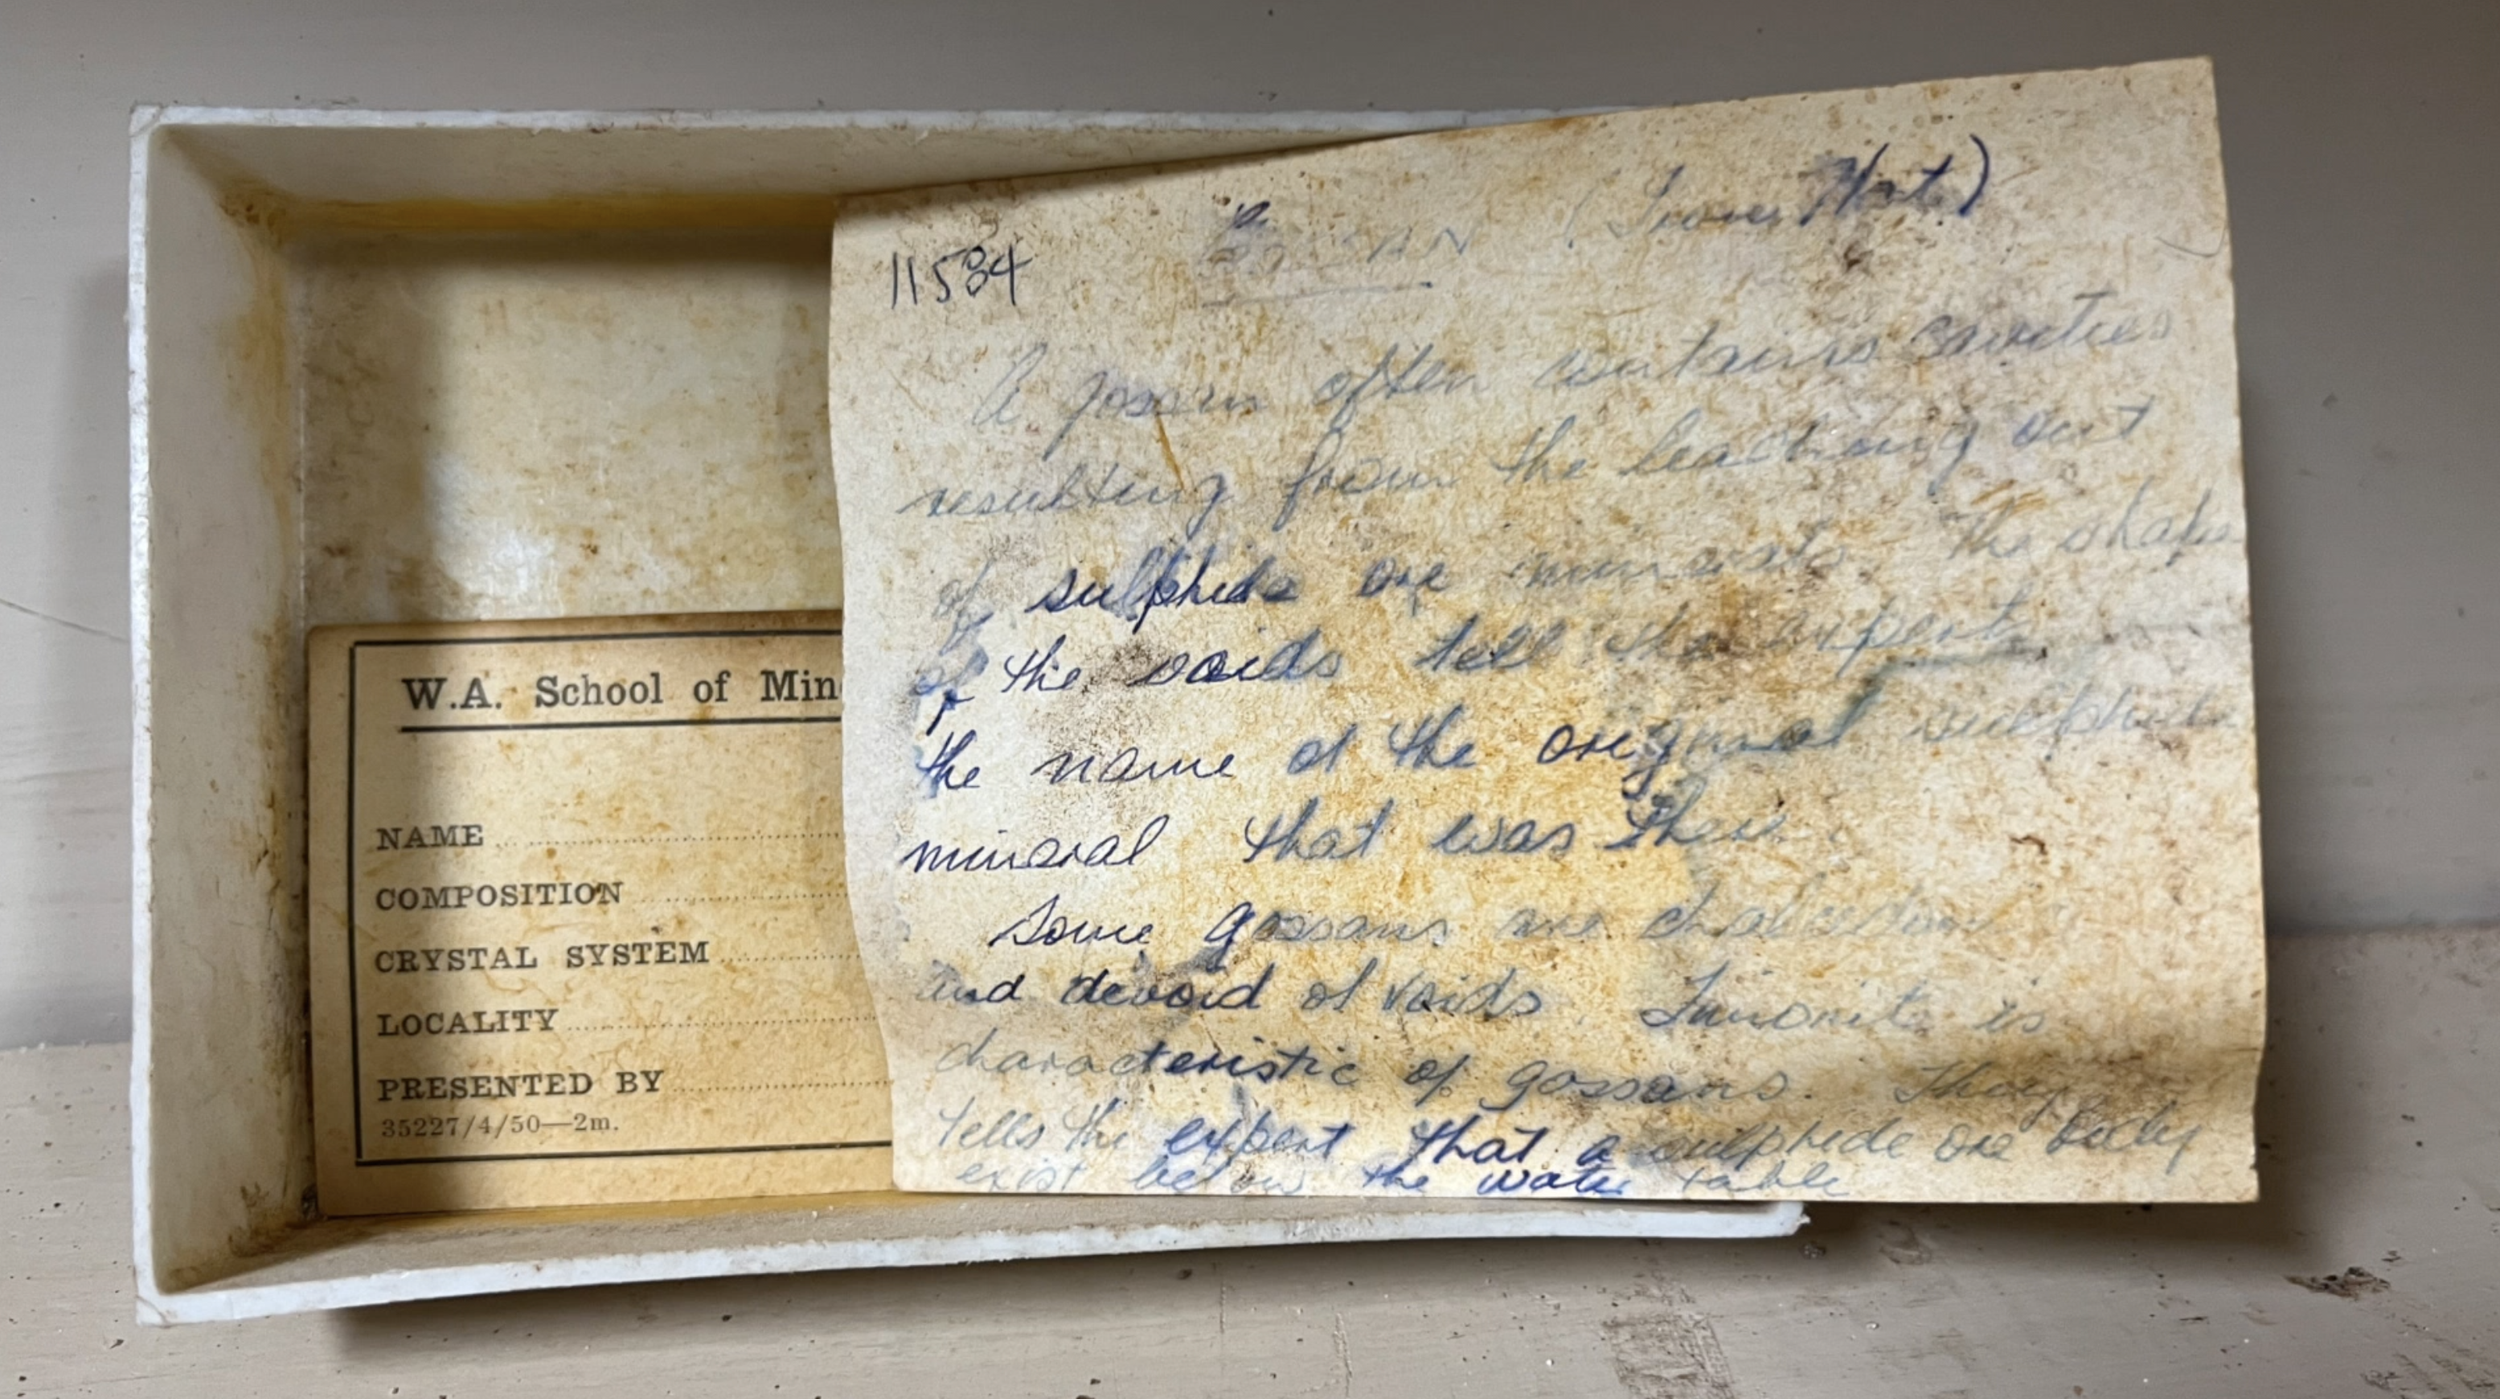 W.A. School of Min
NAME
COMPOSITION
CRYSTAL SYSTEM
LOCALITY
PRESENTED BY
35227/4/50—2m.
11534
(Iron Hat)
A gossan often contains cavities
resulting from the leaching out
of sulphide ore minerals. The shape
of the voids tell the expert
the name of the original sulphide
mineral that was there.
Some gossans are chalcedony
and devoid of voids. Limonite is
characteristic of gossans. They
tells the expert that a sulphide ore body
exist below the water table